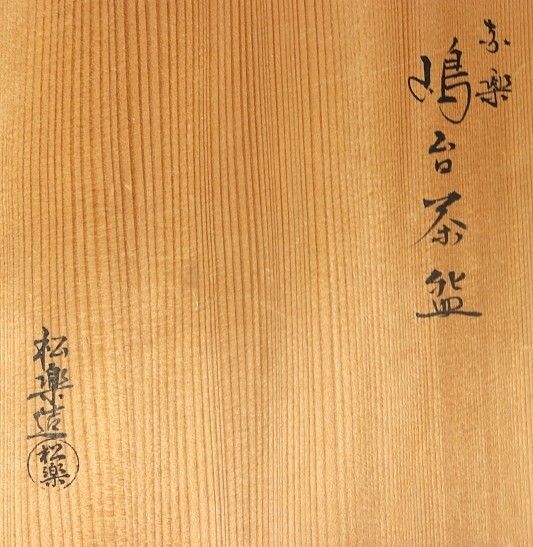 赤楽
嶋台茶盌
松楽造
松楽